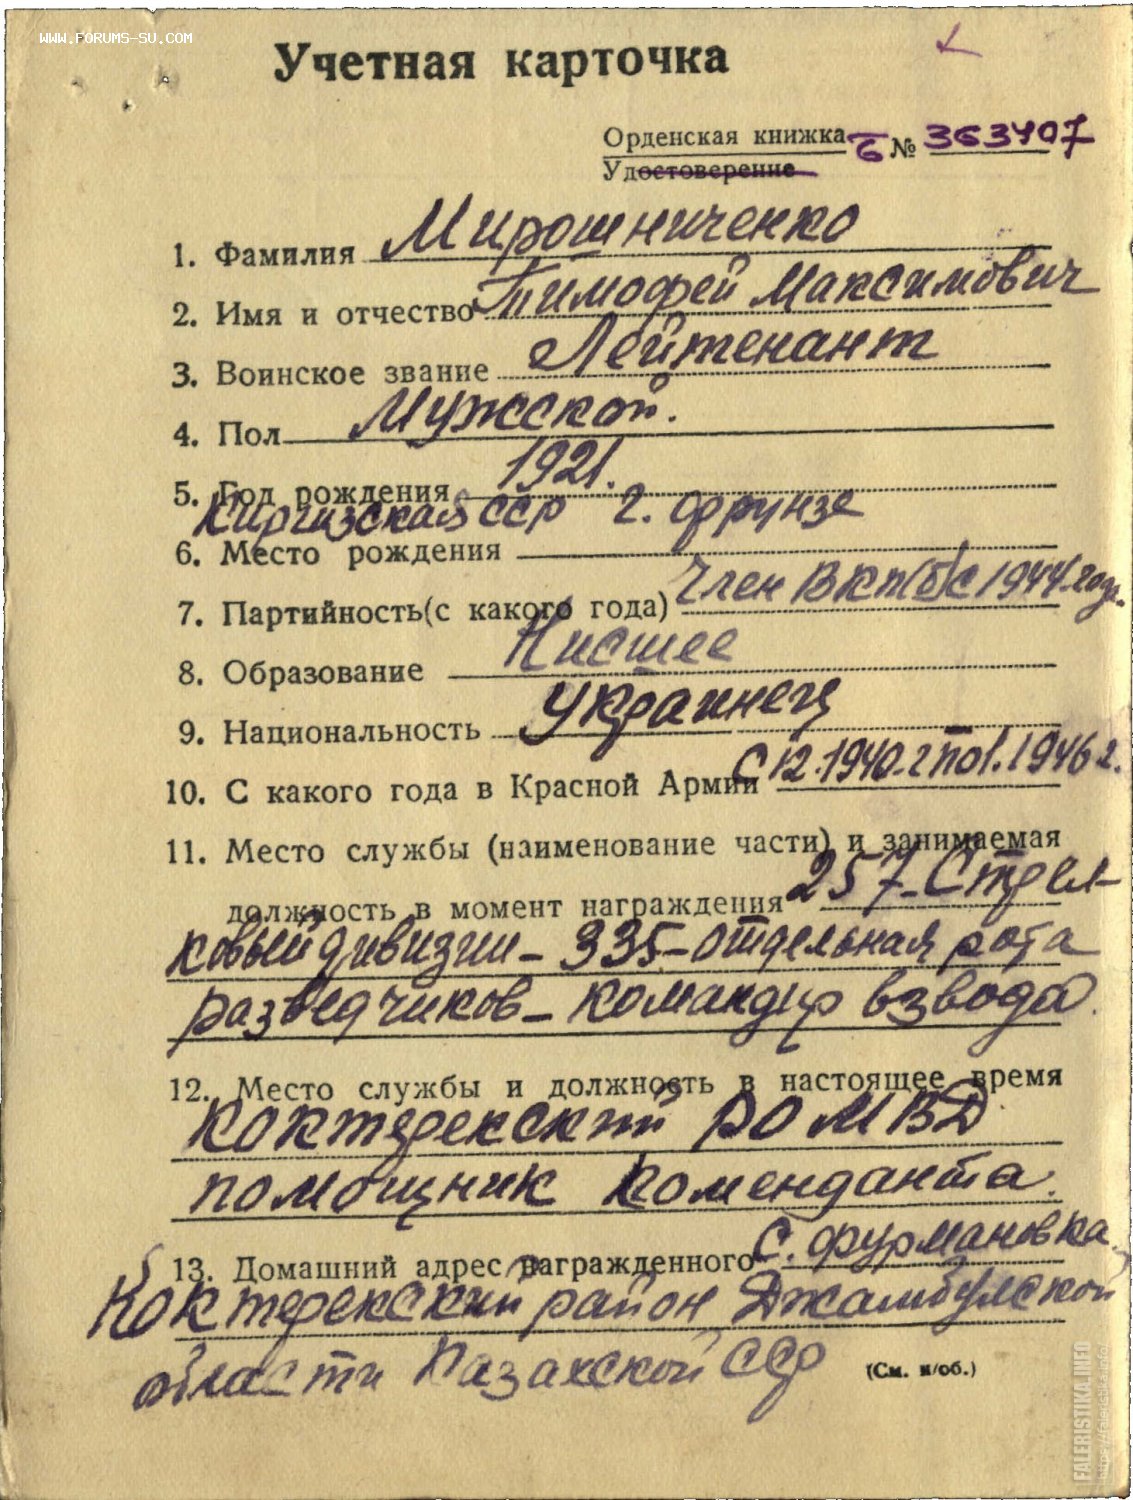 WWW.FORUMS-SU.COM
Учетная карточка
Орденская книжка Б № 363407
Удостоверение
1. Фамилия Мирошниченко
2. Имя и отчество Тимофей Максимович
3. Воинское звание Лейтенант
4. Пол Мужской.
5. Год рождения 1921.
Киргизская ССР г. Фрунзе
6. Место рождения
7. Партийность (с какого года) Член ВКП(б) с 1944 года.
8. Образование Нисшее
9. Национальность Украинец
10. С какого года в Красной Армии С 12.1940.г по 1.1946 г.
11. Место службы (наименование части) и занимаемая
должность в момент награждения 257-Стрел-
ковый дивизии-335-отдельная рота
разведчиков-командир взвода.
12. Место службы и должность в настоящее время
Коктерекский РО МВД
помощник Коменданта.
13. Домашний адрес награжденного С. Фурмановка,
Коктерекский район Джамбулской
области Казахской ССР
(См. н/об.)
FALERISTIKA.INFO
https://faleristika.info/